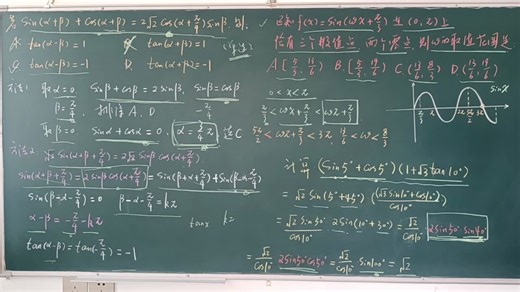 若 Sin(α+β) + Cos(α+β) = 2√2 Cos(α+π/4) Sinβ, 则
A. tan(α-β)=1 B. tan(α+β)=1
C. tan(α-β)=-1 D. tan(α+β)=-1
方法1: 取α=0. Sinβ+Cosβ=2Sinβ, Sinβ=Cosβ
β=π/4, 排除A. D
取β=0. Sinα+Cosα=0, α=-π/4 选C
方法2: √2 Sin(α+β+π/4)=2√2 Sinβ Cos(α+π/4)
Sin(α+β+π/4)=2Sinβ Cos(α+π/4)=Sin(β+α+π/4)+Sin(β-α-π/4)
Sin(β-α-π/4)=0 β-α-π/4=kπ
α-β=-π/4-kπ tanx kπ
tan(α-β)=tan(-π/4)=-1
已知 f(x)=Sin(ωx+π/3) 在 (0, π) 上
恰有三个极值点, 两个零点, 则ω的取值范围是
A [5/3, 13/6) B. [5/3, 19/6) C (13/6, 8/3] D (13/6, 19/6]
0<x<π
π/3<ωx+π/3<ωπ+π/3
5π/2<ωπ+π/3≤3π, 13/6<ω≤8/3
Sinx
计算 (Sin5°+Cos5°)(1+√3tan10°)
=√2 Sin(5°+45°) (√3Sin10°+Cos10°)/Cos10°
=√2 Sin50°/Cos10° 2Sin(10°+30°)=√2/Cos10° 2Sin50°Sin40°
=√2/Cos10° 2Sin50°Cos50°=√2/Cos10° Sin100°=√2